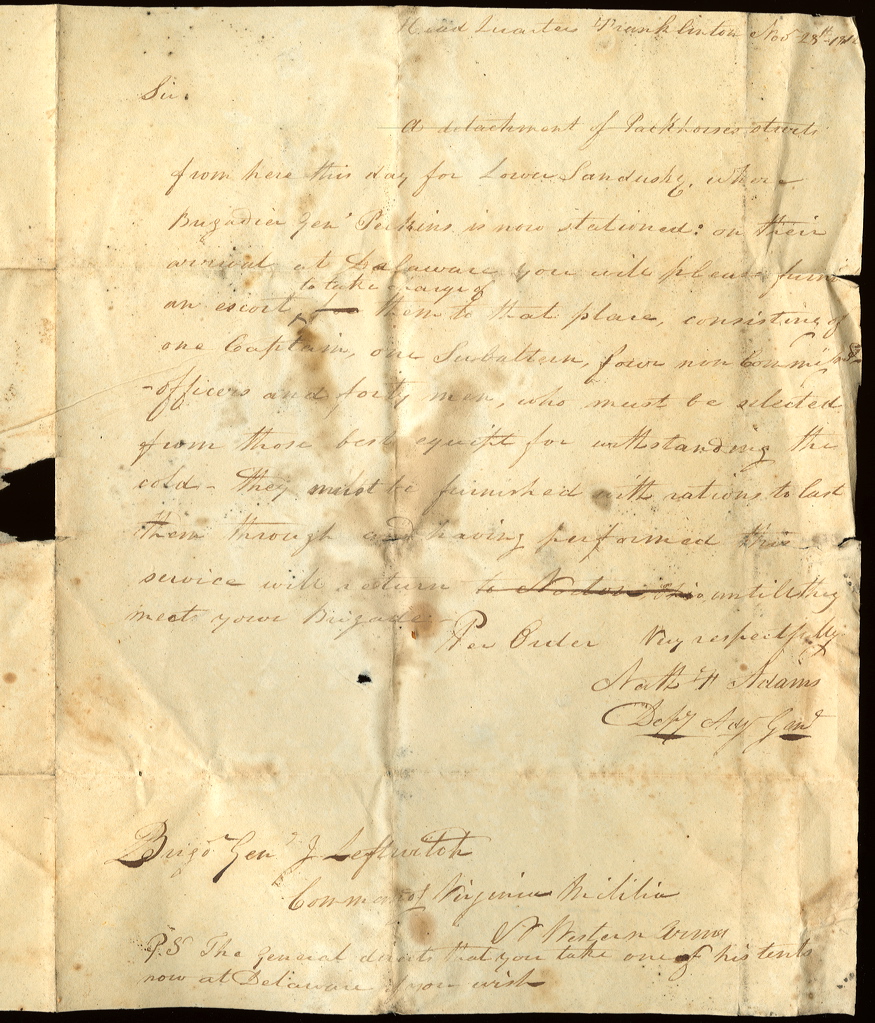 Head Quarters Franklinton Nov 28th 1812
Sir.
A detachment of Packhorses starts
from here this day for Lower Sandusky, where
Brigadier Genl Perkins is now stationed: on their
arrival at Delaware you will please furnish
to take charge of
an escort for them to that place, consisting of
one Captain, one Subaltern, four non Commissd
-officers and forty men, who must be selected
from those best equipt for withstanding the
cold - they must be furnished with rations to last
them through and having performed this
service will return to untill they
meets your Brigade -
Per Order Very respectfully
Nathl F Adams
Depy Adj Genl
Brigr Genl J Leftwitch
Command Virginia Militia
N Western Army
P.S The General directs that you take one of his tents
now at Delaware if you wish